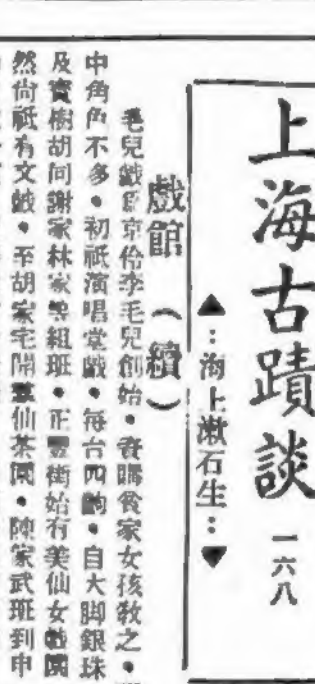 上海古蹟談 一六八
▲:海上漱石生:▼
戲館 (續)
毛兒戲爲京伶李毛兒創始・資購貧家女孩教之・
中角色不多・初祇演唱堂戲・每台四齣・自大脚銀珠
及寶樹胡同謝家林家等組班・正豐街始有美仙女戲園
然尙祇有文戲・至胡家宅開羣仙茶園・陳家武班到申